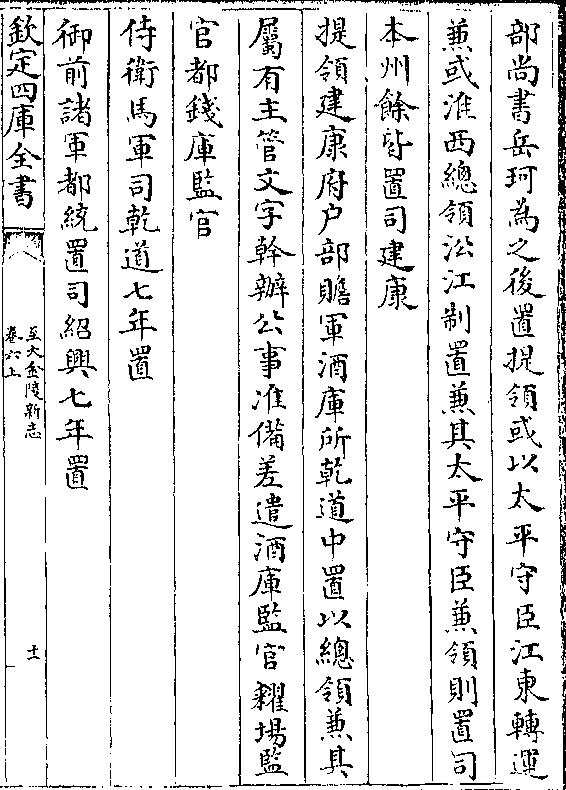 部尚書岳珂為之後置提領或以太平守臣江東轉運
兼或淮西總領沿江制置兼其太平守臣兼領則置司
本州餘皆置司建康
提領建康府户部贍軍酒庫所乾道中置以總領兼其
屬有主管文字幹辦公事准備差遣酒庫監官糴場監
官都錢庫監官
侍衛馬軍司乾道七年置
御前諸軍都統置司紹興七年置
欽定四庫全書
至大金陵新志
卷六上
十一